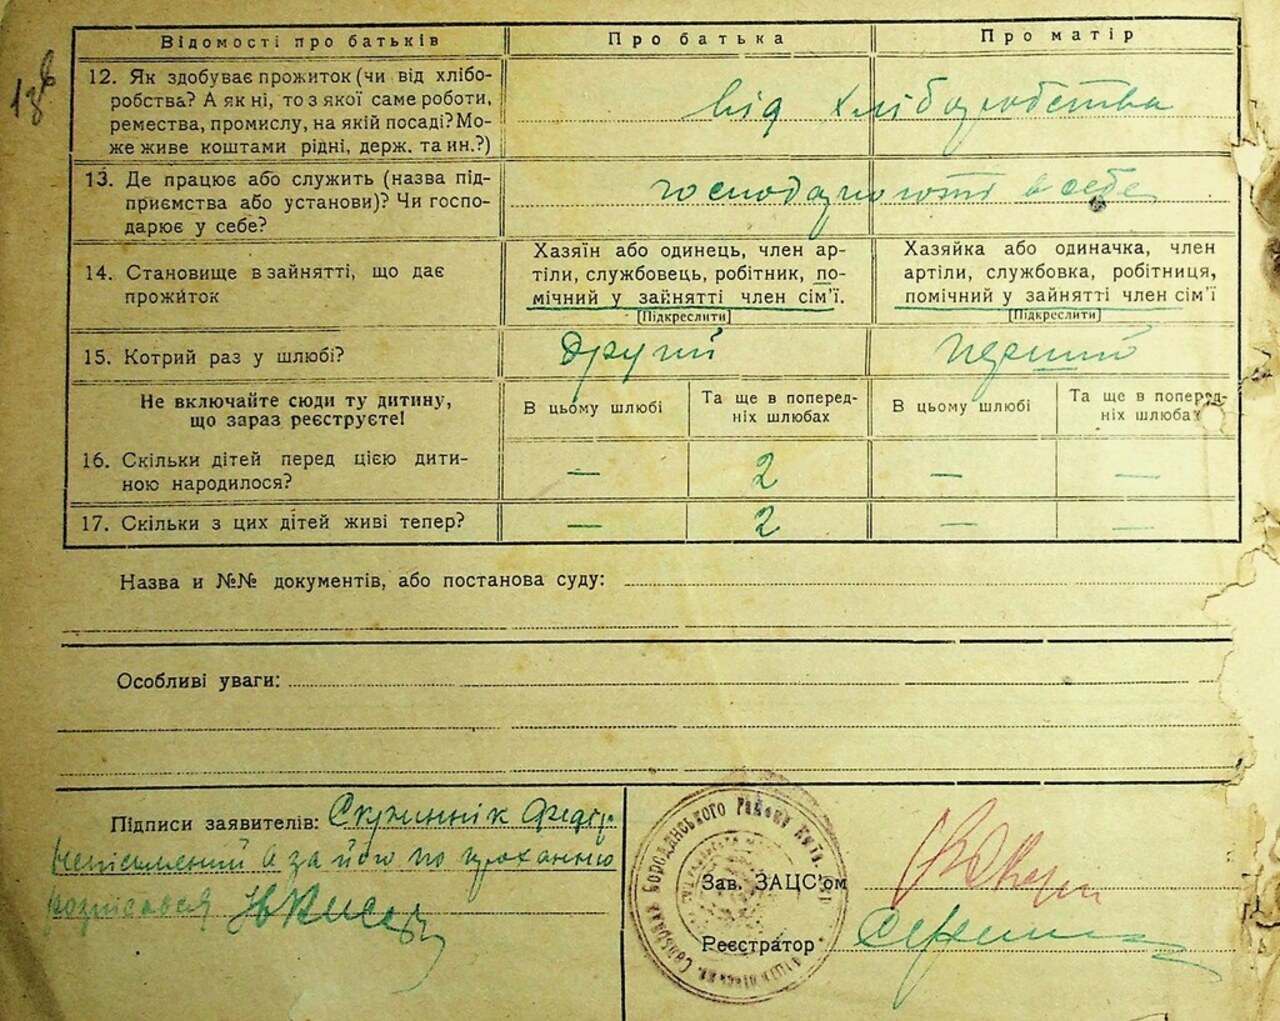 Відомості про батьків
Про батька
Про матір
12. Як здобуває прожиток (чи від хлібо-
робства? А як ні, то з якої саме роботи,
ремества, промислу, на якій посаді? Мо-
же живе коштами рідні, держ. та ин.?)
від хліборобства
13. Де працює або служить (назва під-
приємства або установи)? Чи госпо-
дарює у себе?
господарюють в себе
14. Становище в зайнятті, що дає
прожиток
Хазяїн або одинець, член ар-
тіли, службовець, робітник, по-
мічний у зайнятті член сім'ї.
[Підкреслити]
Хазяйка або одиначка, член
артіли, службовка, робітниця,
помічний у зайнятті член сім'ї
[Підкреслити]
15. Котрий раз у шлюбі?
другий
перший
Не включайте сюди ту дитину,
що зараз реєструєте!
В цьому шлюбі
Та ще в поперед-
ніх шлюбах
В цьому шлюбі
Та ще в поперед-
ніх шлюбах
16. Скільки дітей перед цією дити-
ною народилося?
—
2
—
—
17. Скільки з цих дітей живі тепер?
—
2
—
—
Назва и №№ документів, або постанова суду:
Особливі уваги:
Підписи заявителів: Скринник Федір
неписьменний а за його по проханню
розписався
Зав. ЗАЦС'ом
Реєстратор
Бородянського району Київ.